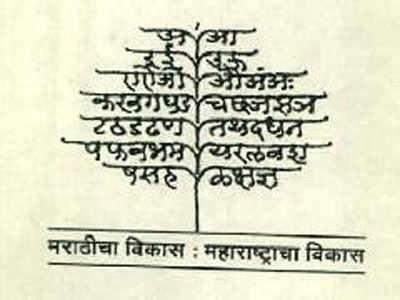 अ आ
इई उऊ
एऐओ औअंअः
कखगघङ चछजझञ
टठडढण तथदधन
पफबभम यरलवश
षसह ळक्षज्ञ
मराठीचा विकास : महाराष्ट्राचा विकास